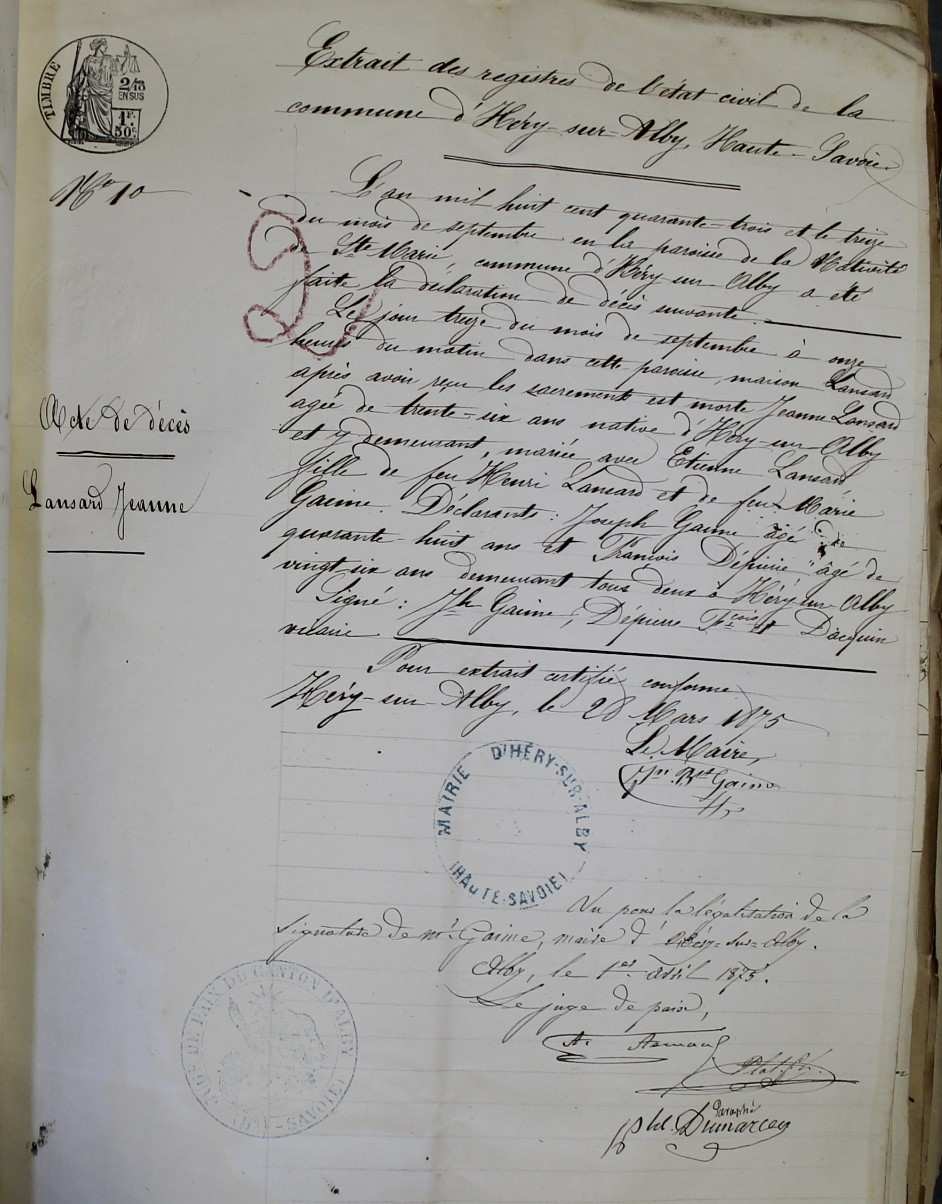 TIMBRE
2/10
EN SUS
1F.
50c.
Extrait des registres de l'état civil de la
commune d'Héry-sur-Alby, Haute-Savoie
No 10
L'an mil huit cent quarante-trois et le treize
du mois de septembre en la paroisse de la Nativité
de Ste Marie, commune d'Héry-sur-Alby a été
faite la déclaration de décès suivante.
Le jour treize du mois de septembre à onze
heures du matin dans cette paroisse, maison Lansard
après avoir reçu les sacrements est morte Jeanne Lansard
agée de trente-six ans native d'Héry-sur-Alby
et y demeurant, mariée avec Etienne Lansard
fille de feu Henri Lansard et de feu Marie
Gaime. Déclarants: Joseph Gaime âgé de
quarante-huit ans et François Dépierre âgé de
vingt six ans demeurant tous deux à Héry-sur-Alby
Signé: Jh Gaime, Dépierre Fcois et Dacquin
vicaire
Acte de décès
Lansard Jeanne
Pour extrait certifié conforme
Héry-sur-Alby, le 28 Mars 1875
Le Maire,
Jn Bte Gaime
MAIRIE D'HÉRY-SUR-ALBY
(HAUTE-SAVOIE)
Vu pour la légalisation de la
signature de Mr Gaime, maire d'Héry-sur-Alby.
Alby, le 1er avril 1875.
Le juge de paix,
JUGE DE PAIX DU CANTON D'ALBY
Paraphé
Dumarcey